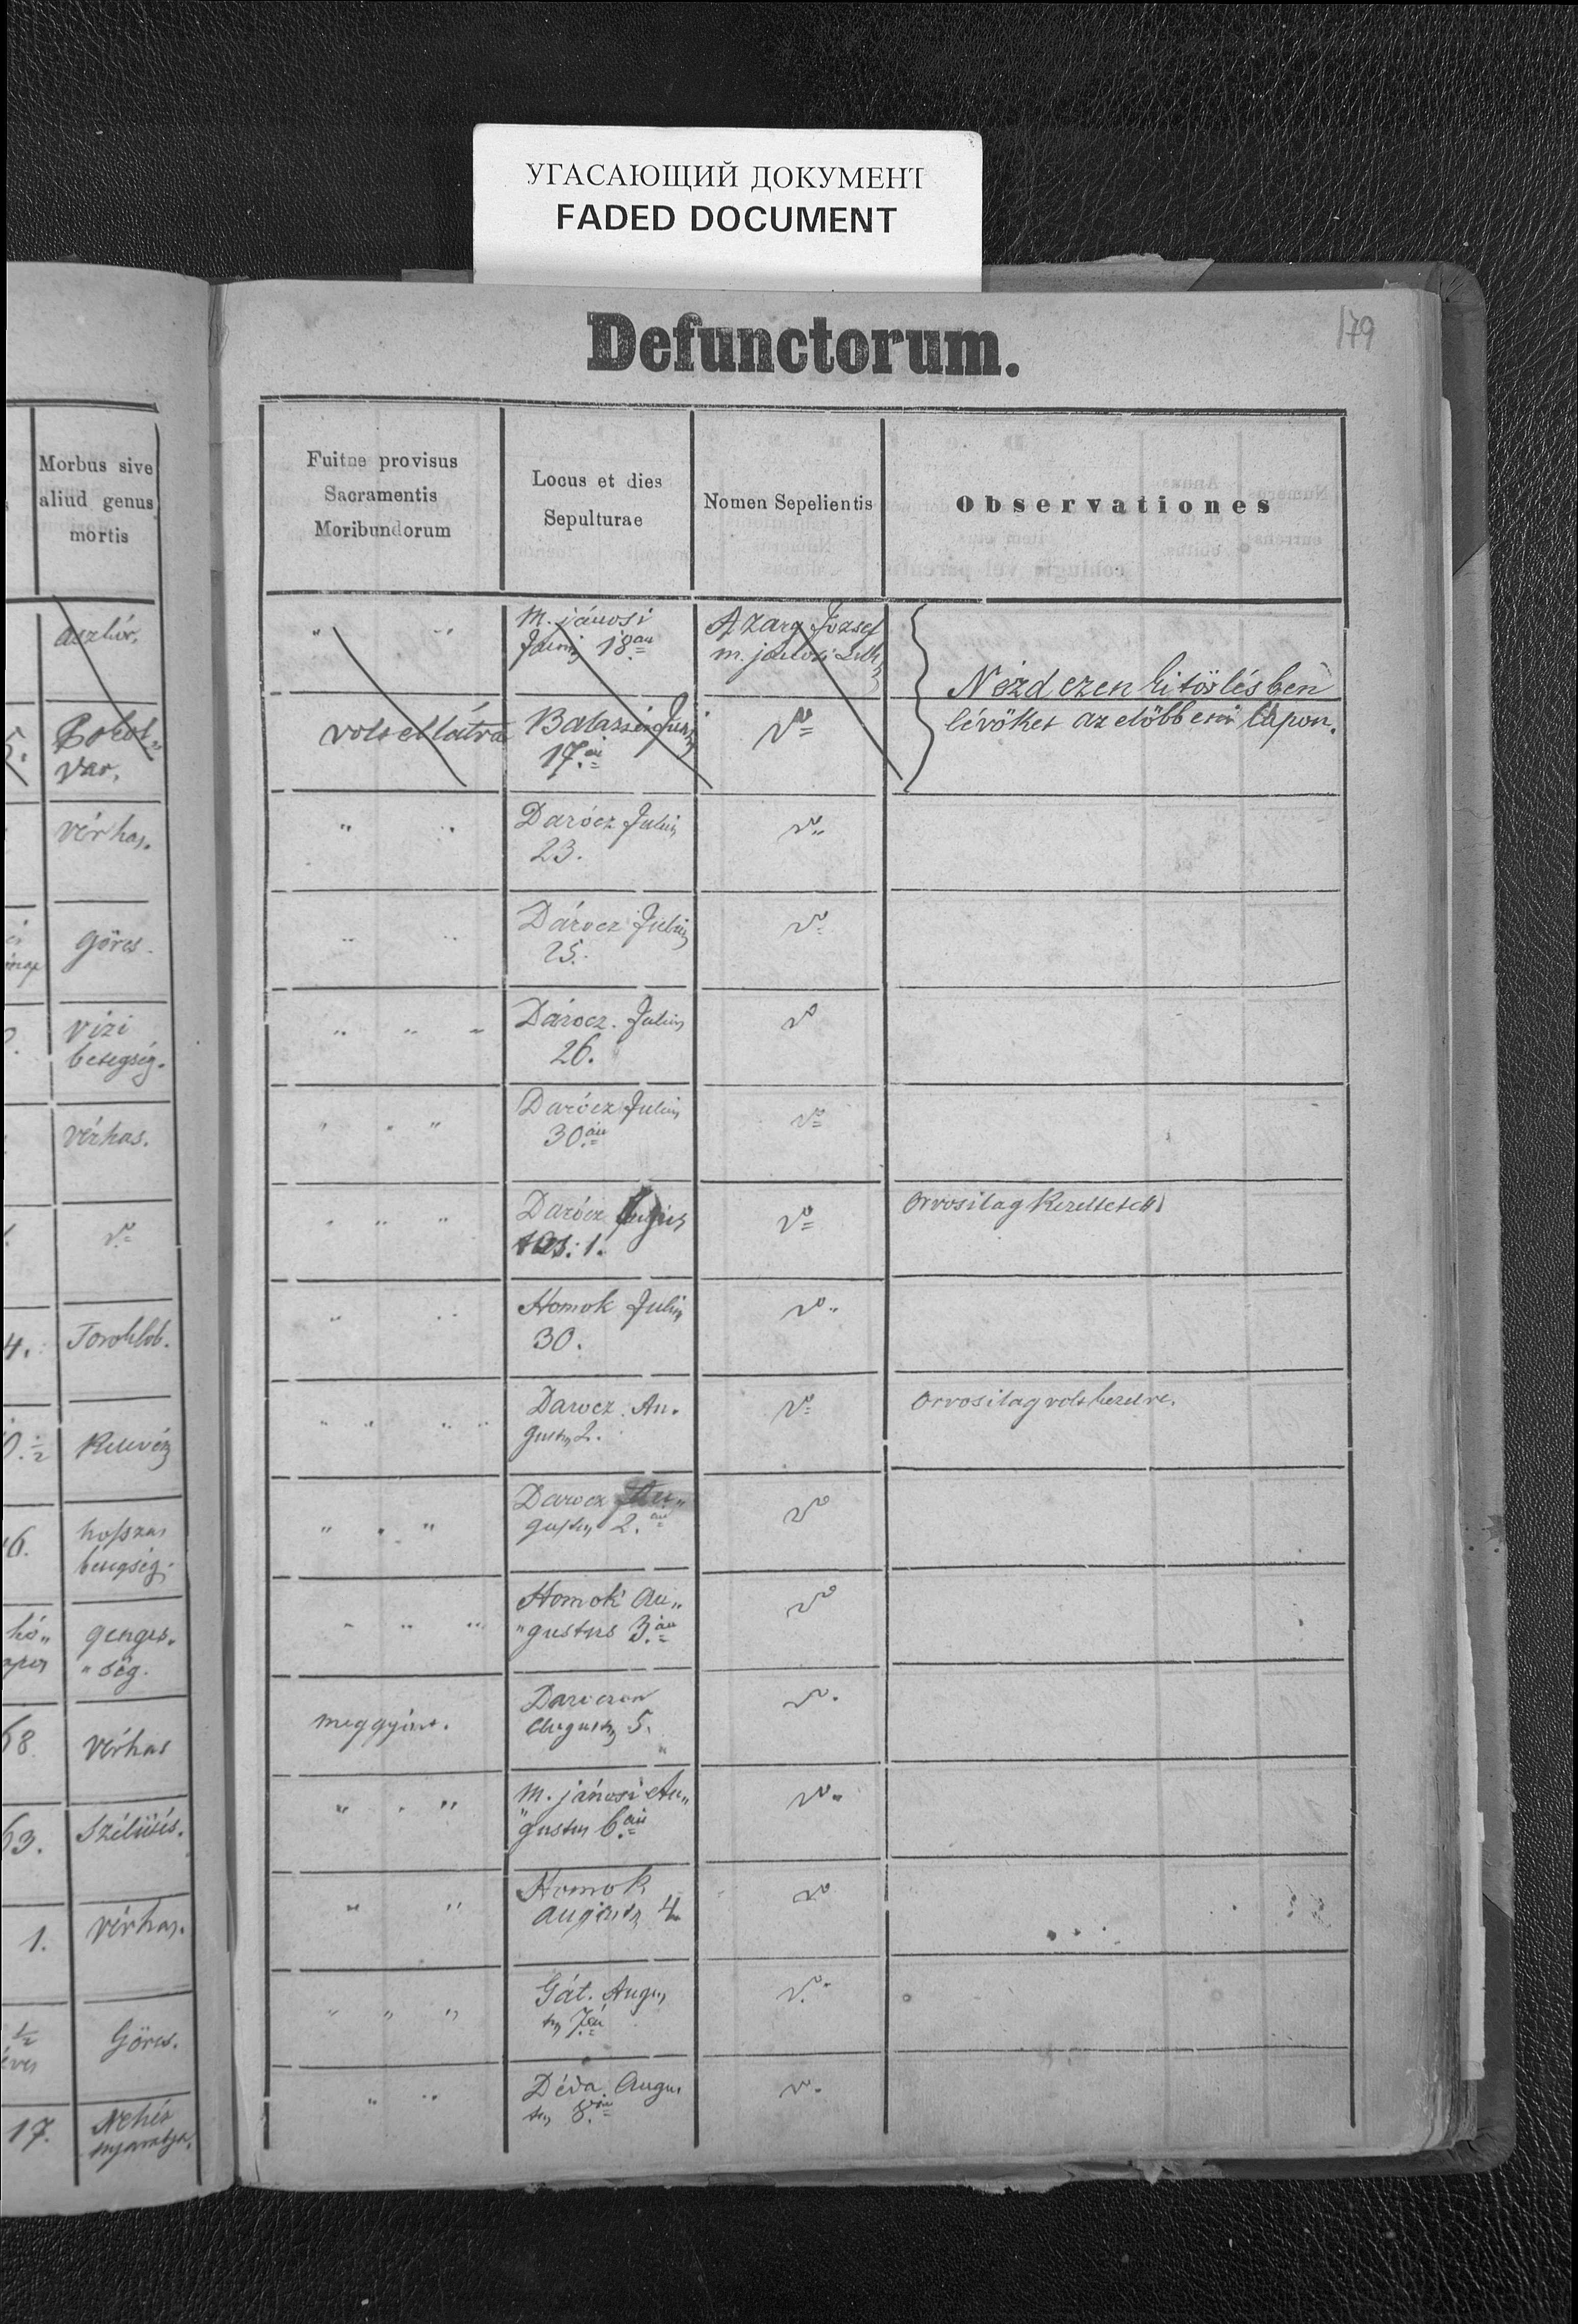 УГАСАЮЩИЙ ДОКУМЕНТ
FADED DOCUMENT
179
Defunctorum.
Morbus sive
aliud genus
mortis
Fuitne provisus
Sacramentis
Moribundorum
Locus et dies
Sepulturae
Nomen Sepelientis
Observationes
aszkór.
" "
M. jánosi
18.án
József
m. jánosi
Nézd ezen kitörlésben
lévőket az előbbeni lapon.
5.
var.
volt ellátva
17.
vo
vérhas.
" "
Darócz Julius
23.
vo
görcs.
" "
Dárocz Julius
25.
vo
vizi
betegség.
" " "
Dárocz. Julius
26.
vo
vérhas.
" " "
Darócz Julius
30.án
vo
vo
" " "
Darócz
1.
vo
Orvosilag kezeltetett
4.
Toroklob.
" "
Homok Julius
30.
vo
1/2
" " "
Darocz. Au.
gustus 2.
vo
Orvosilag volt kezelve.
6.
hoszas
betegség.
" " "
Darocz Au"
gustus 2.án
vo
hó"
genges"
" ség.
" " "
Homok Au"
"gustus 3.án
vo
68.
vérhas
meggyónt.
Augustus 5.
vo.
63.
Szélütés.
" " "
M. jánosi Au"
"gustus 6.án
vo
1.
vérhas.
" "
Homok
4
vo
1/2
éves
Görcs.
" " "
Gát. Augus
tus 7.én
vo
17.
Nehéz
" "
Déda. Augus
tus 8.án
vo.